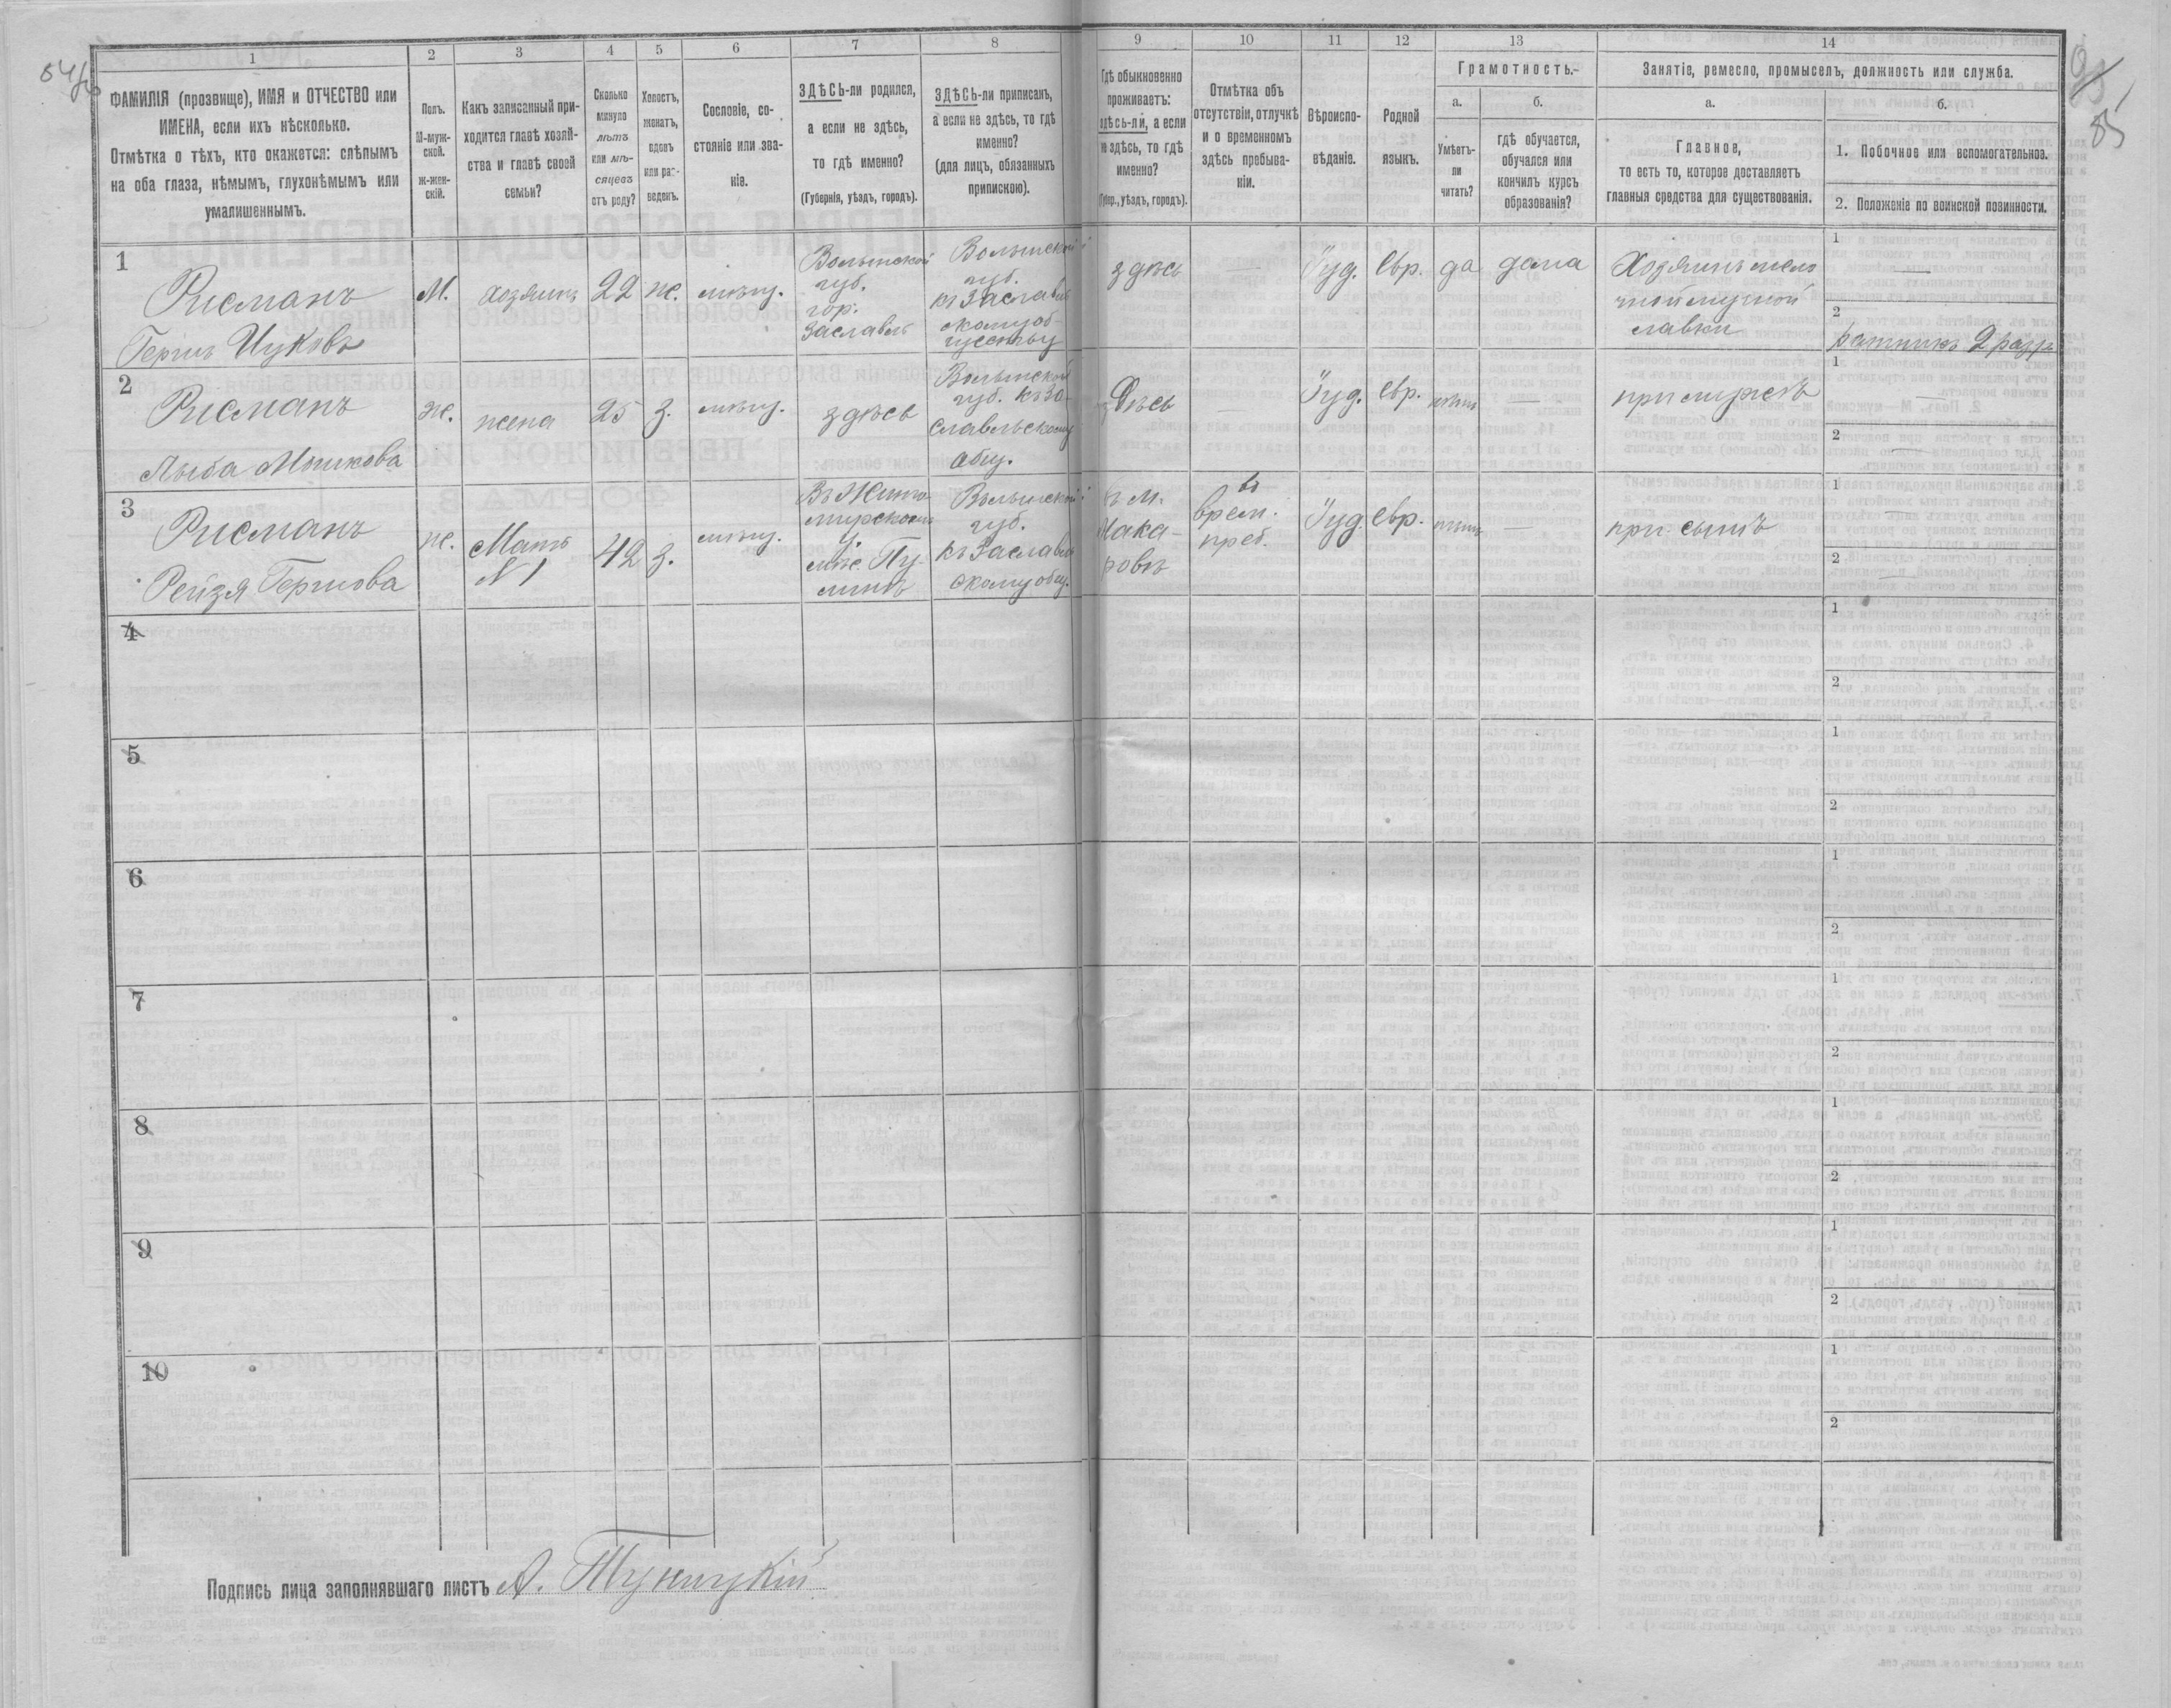 1 2 3 4 5 6 7 8 9 10 11 12 13 14
ФАМИЛІЯ (прозвище), ИМЯ и ОТЧЕСТВО или
ИМЕНА, если ихъ нѣсколько.
Отмѣтка о тѣхъ, кто окажется: слѣпымъ
на оба глаза, нѣмымъ, глухонѣмымъ или
умалишеннымъ.
Полъ.
М-муж-
ской.
ж-жен-
скій.
Какъ записанный при-
ходится главѣ хозяй-
ства и главѣ своей
семьи?
Сколько
минуло
лѣтъ
или мѣ-
сяцевъ
отъ роду?
Холостъ,
женатъ,
вдовъ
или раз-
веденъ.
Сословіе, со-
стояніе или зва-
ніе.
ЗДѢСЬ-ли родился,
а если не здѣсь,
то гдѣ именно?
(Губернія, уѣздъ, городъ).
ЗДѢСЬ-ли приписанъ,
а если не здѣсь, то гдѣ
именно?
(для лицъ, обязанныхъ
припискою).
Гдѣ обыкновенно
проживаетъ:
здѣсь-ли, а если
не здѣсь, то гдѣ
именно?
(Губер., уѣздъ, городъ).
Отмѣтка объ
отсутствіи, отлучкѣ
и о временномъ
здѣсь пребыва-
ніи.
Вѣроиспо-
вѣданіе.
Родной
языкъ.
Грамотность.
а.
Умѣетъ-
ли
читать?
б.
гдѣ обучается,
обучался или
кончилъ курсъ
образованія?
Занятіе, ремесло, промыселъ, должность или служба.
а.
Главное,
то есть то, которое доставляетъ
главныя средства для существованія.
б.
1. Побочное или вспомогательное.
2. Положеніе по воинской повинности.
1
Рисманъ
Гершъ Ицковъ
М.
хозяинъ
22
ж.
мѣщ.
Волынской
губ.
гор.
Заславль
Волынской
губ.
къ Заславль
скому об-
ществу
здѣсь
—
Іуд.
Евр.
да
дома
Хозяинъ мело
чной мучной
лавки
1
—
2
ратникъ 2 разр
2
Рисманъ
Лыба Мошкова
ж.
жена
25
з.
мѣщ.
здѣсь
Волынской
губ. къ За-
славльскому
общ.
здѣсь
—
Іуд.
Евр.
нѣтъ
—
при мужѣ
1
—
2
—
3
Рисманъ
Рейзя Гершова
ж.
Мать
N 1
42
з.
мѣщ.
Въ Жито-
мирскомъ
у.
мѣс. Пу-
линѣ
Волынской
губ.
къ Заславль
скому общ.
въ м.
Мака-
ровѣ
врем.
преб.
Іуд.
Евр.
нѣтъ
—
при сынѣ
1
—
2
—
4
1
2
5
1
2
6
1
2
7
1
2
8
1
2
9
1
2
10
1
2
Подпись лица заполнявшаго листъ А. Туницкій
85